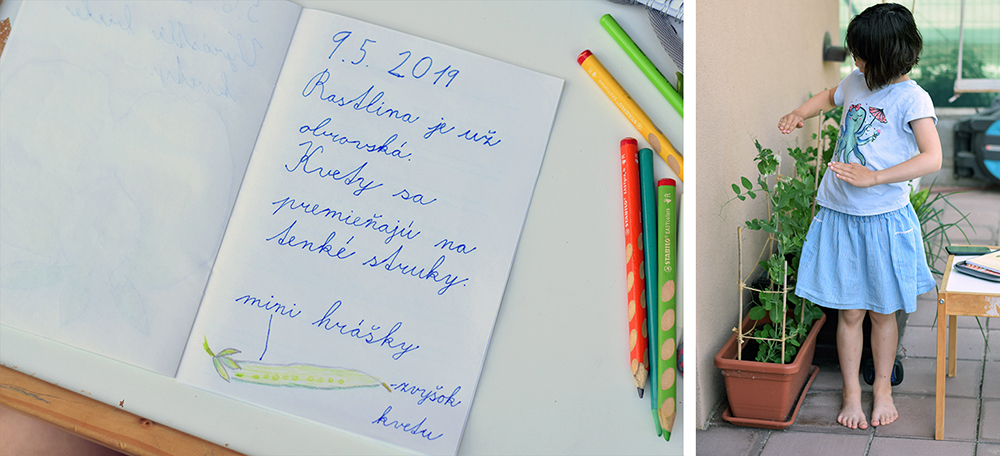 9.5. 2019
Rastlina je už
obrovská.
Kvety sa
premieňajú na
tenké struky.
mini hrášky
-zvyšok
kvetu
STABILO
STABILO